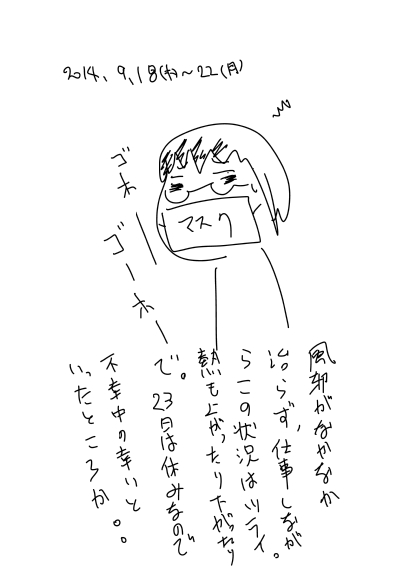 2014.9.18(木)~22(月)
ゴホ
ゴーホー
マスク
風邪がなかなか
治らず、仕事しなが
らこの状況はツライ。
熱も上がったり下がったり
で。23日は休みなので
不幸中の幸いと
いったところか。。